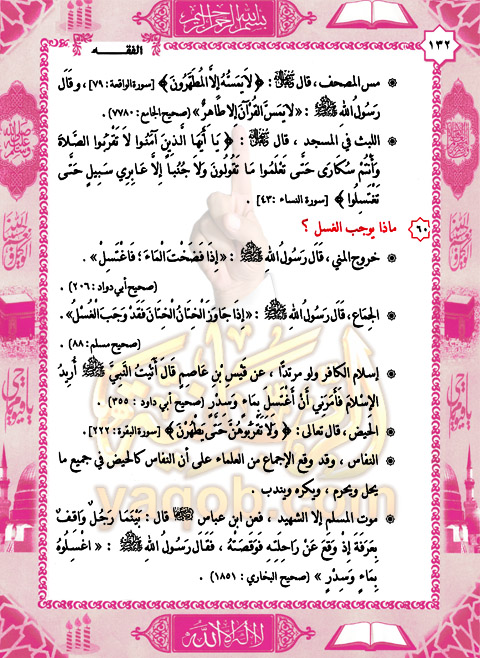 بسم الله الرحمن الرحيم
١٣٢
الفقه
❋ مس المصحف ، قال ﷻ : ﴿ لاَ يَمَسُّهُ إِلاَّ المُطَهَّرُونَ ﴾ [سورة الواقعة : ٧٩] ، وقَالَ
رَسُولُ الله ﷺ : « لاَ يَمَسَّ القُرْآنَ إِلا طَاهِرٌ » (صحيح الجامع: ٧٧٨٠) .
❋ اللبث في المسجد ، قال ﷻ : ﴿ يَا أَيُّهَا الَّذِينَ آمَنُوا لاَ تَقْرَبُوا الصَّلاةَ
وَأَنْتُمْ سُكَارَى حَتَّى تَعْلَمُوا مَا تَقُولُونَ وَلاَ جُنُبًا إِلاَّ عَابِرِي سَبِيلٍ حَتَّى
تَغْتَسِلُوا ﴾ [سورة النساء : ٤٣] .
٦٠ ماذا يوجب الغسل ؟
❋ خروج المني ، قَالَ رَسُولُ اللهِ ﷺ : « إِذَا فَضَخْتَ المَاءَ ؛ فَاغْتَسِلْ » .
(صحيح أبي دواد : ٢٠٦) .
❋ الجِمَاع ، قَالَ رَسُولُ اللهِ ﷺ : « إِذَا جَاوَزَ الخِتَانُ الخِتَانَ فَقَدْ وَجَبَ الغُسْلُ » .
(صحيح مسلم : ٨٨) .
❋ إسلام الكافر ولو مرتدًا ، عن قَيْسِ بْنِ عَاصِمٍ قَالَ أَتَيْتُ النَّبِيَّ ﷺ أُرِيدُ
الإِسْلاَمَ فَأَمَرَنِي أَنْ أَغْتَسِلَ بِمَاءٍ وَسِدْرٍ (صحيح أبي داود : ٣٥٥) .
❋ الحيض ، قال تعالى : ﴿ وَلاَ تَقْرَبُوهُنَّ حَتَّى يَطْهُرْنَ ﴾ [سورة البقرة : ٢٢٢] .
❋ النفاس ، وقد وقع الإجماع من العلماء على أن النفاس كالحيض في جميع ما
يحل ويحرم ، ويكره ويندب .
❋ موت المسلم إلا الشهيد ، فعن ابن عباس قال : بَيْنَمَا رَجُلٌ وَاقِفٌ
بِعَرَفَةَ إِذْ وَقَعَ عَنْ رَاحِلَتِهِ فَوَقَصَتْهُ ، فَقَالَ رَسُولُ اللهِ ﷺ : « اغْسِلُوهُ
بِمَاءٍ وَسِدْرٍ » (صحيح البخاري : ١٨٥١) .
yaqob.com
لا إله إلا الله